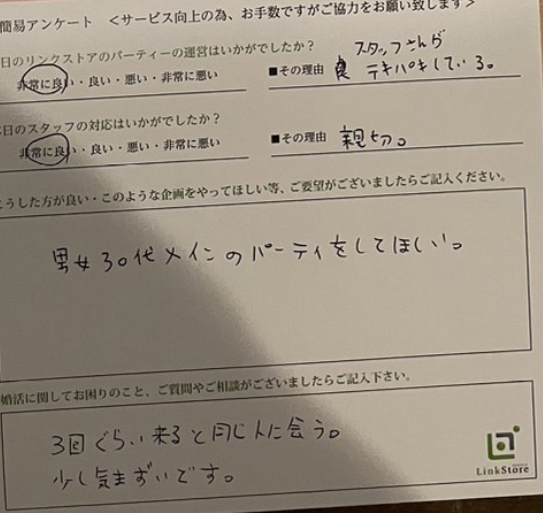 簡易アンケート ＜サービス向上の為、お手数ですがご協力をお願い致します＞
日のリンクストアのパーティーの運営はいかがでしたか？
非常に良い・良い・悪い・非常に悪い
■その理由 スタッフさんが
テキパキしている。
日のスタッフの対応はいかがでしたか？
非常に良い・良い・悪い・非常に悪い
■その理由 親切。
こうした方が良い・このような企画をやってほしい等、ご要望がございましたらご記入ください。
男女30代メインのパーティをしてほしい。
婚活に関してお困りのこと、ご質問やご相談がございましたらご記入下さい。
3回ぐらい来ると同じ人に会う。
少し気まずいです。
LinkStore